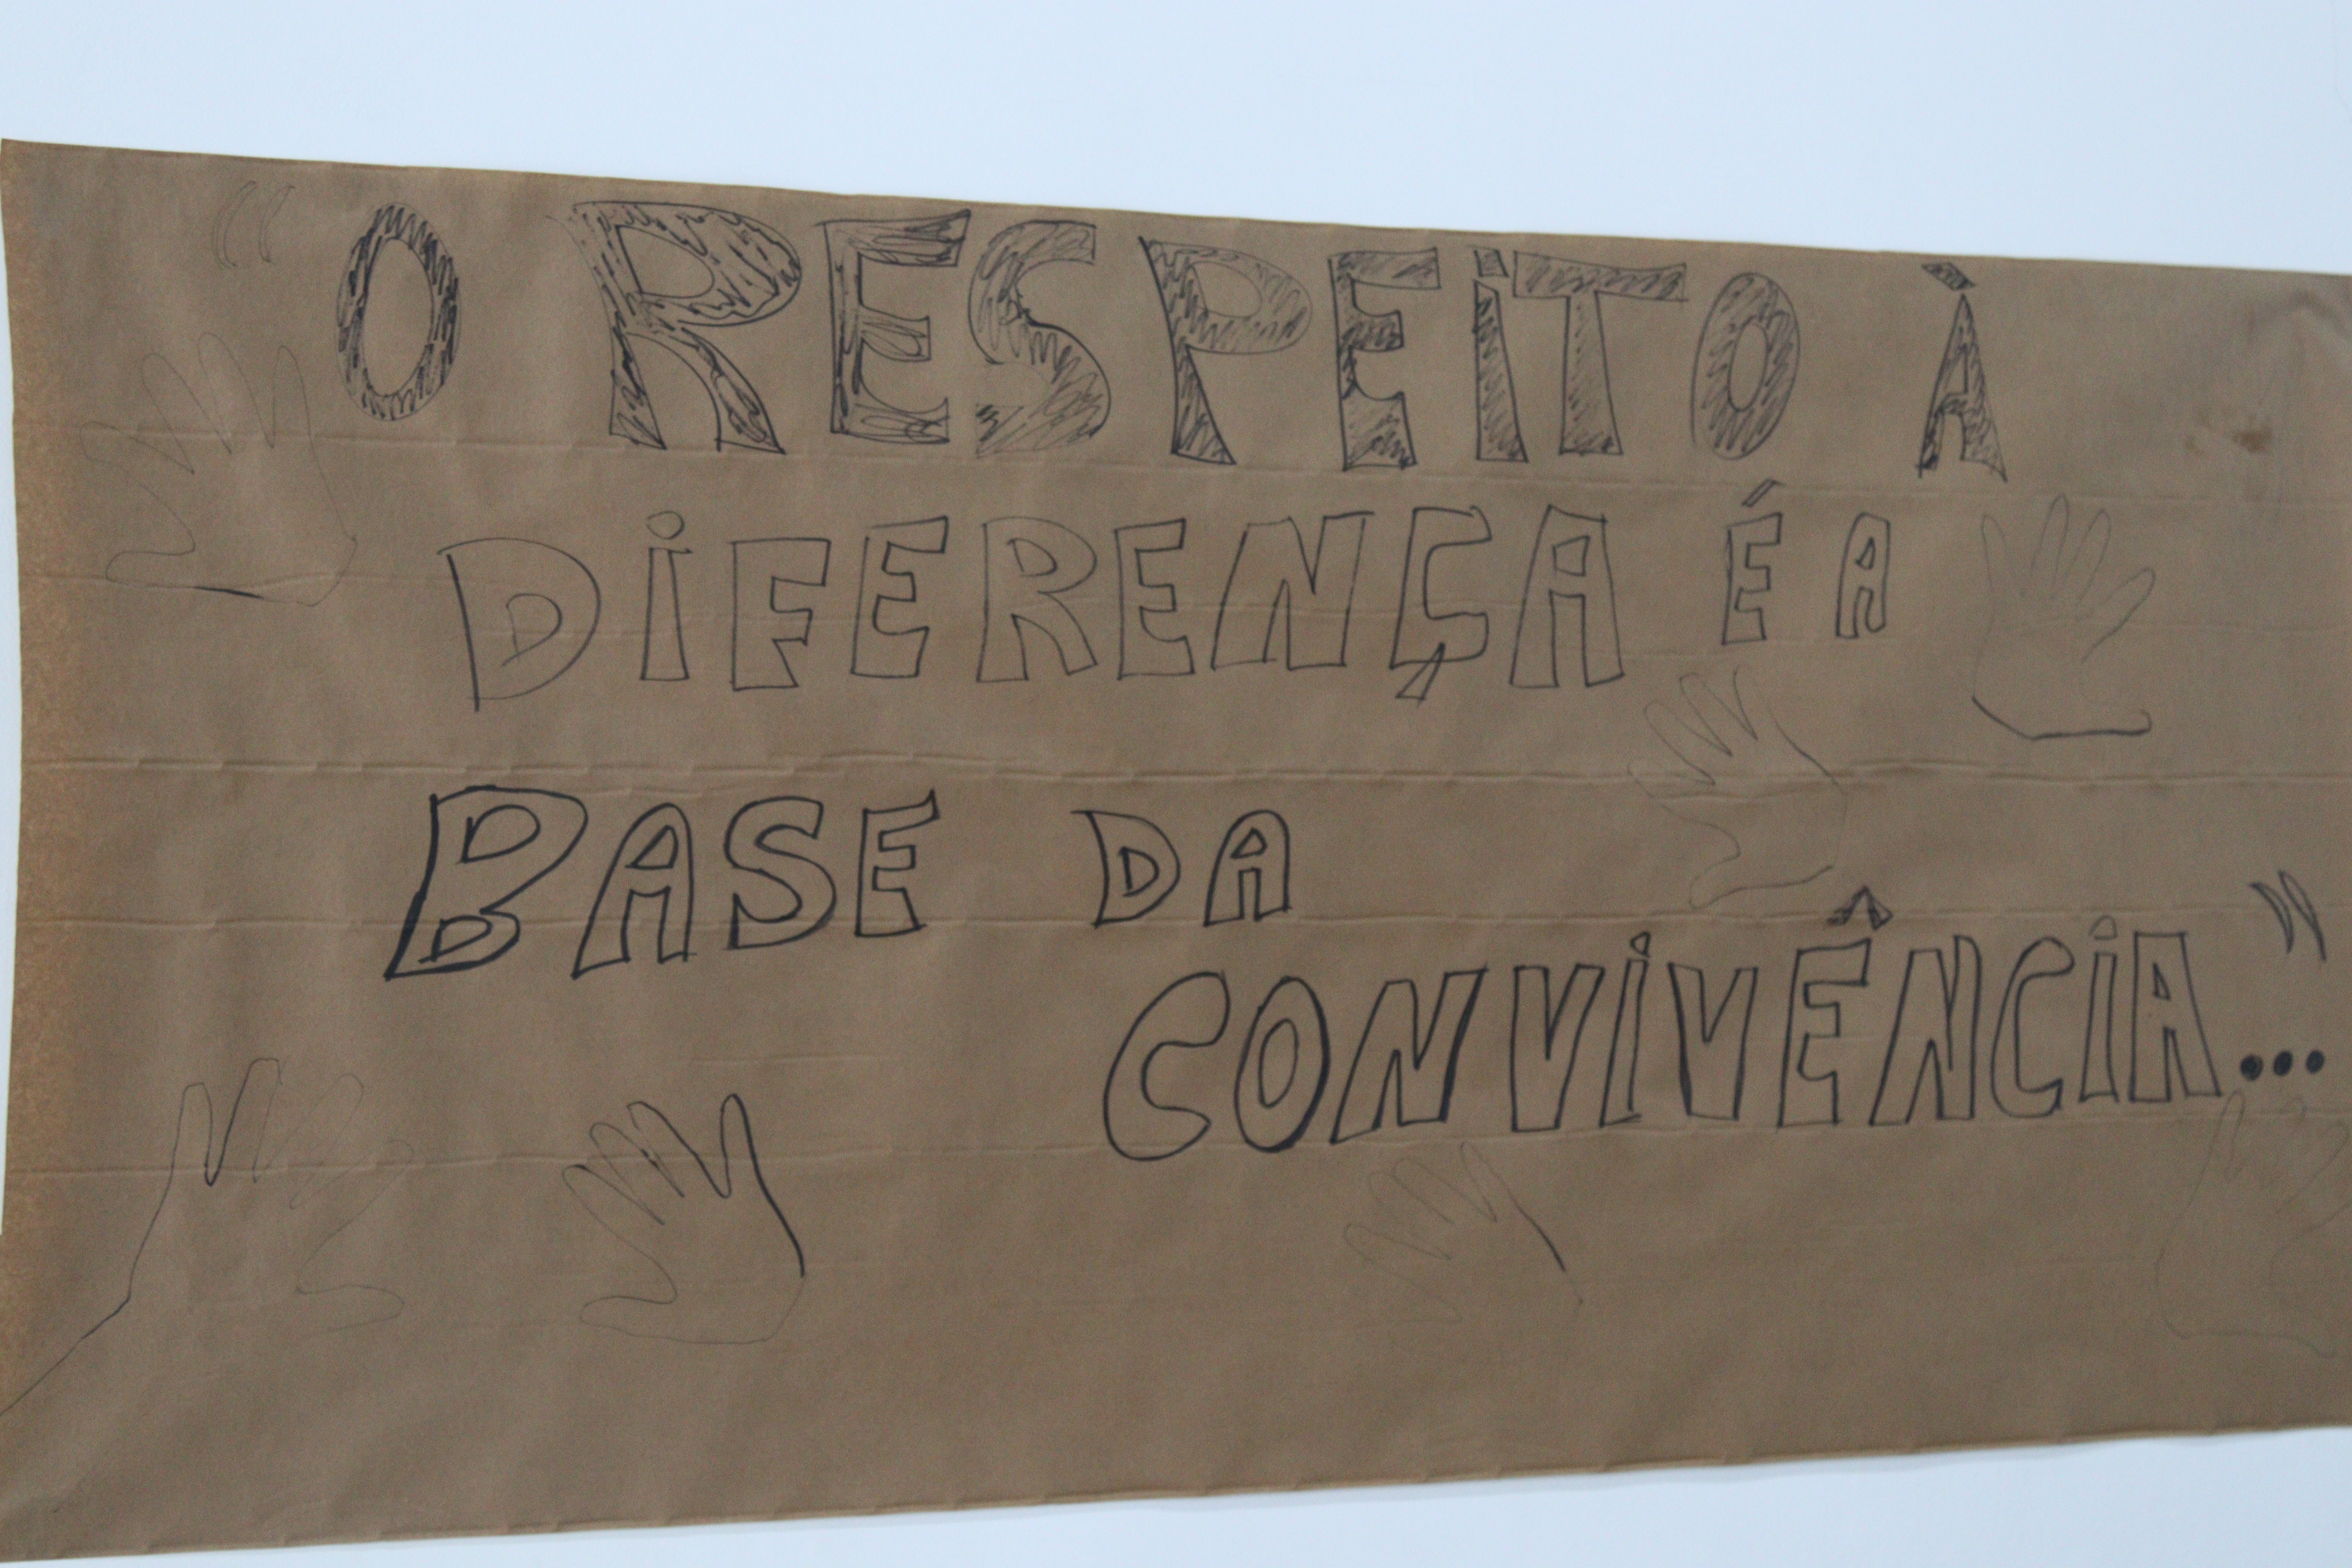 “O RESPEITO À
DIFERENÇA É A
BASE DA
CONVIVÊNCIA...”